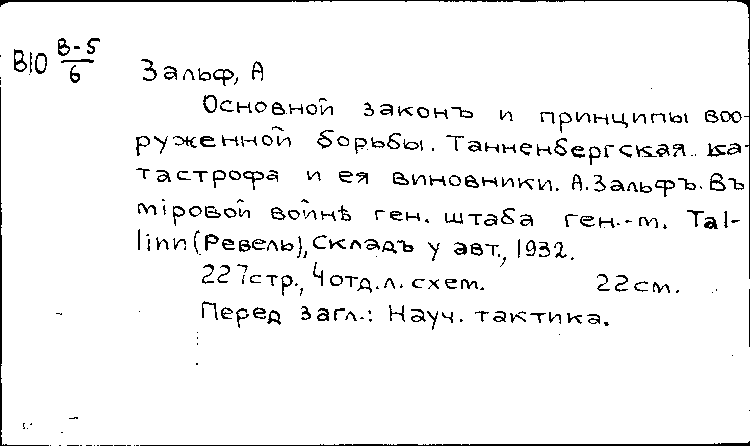 В10 В-5/6
Зальф, А
Основной законъ и принципы воо-
руженной борьбы. Танненбергская ка-
тастрофа и ея виновники. А. Зальфъ. Въ
міровой войнѣ ген. штаба ген.-м. Tal-
linn (Ревель), Складъ у авт., 1932.
227стр., 4 отд. л. схем. 22см.
Перед загл.: Науч. тактика.